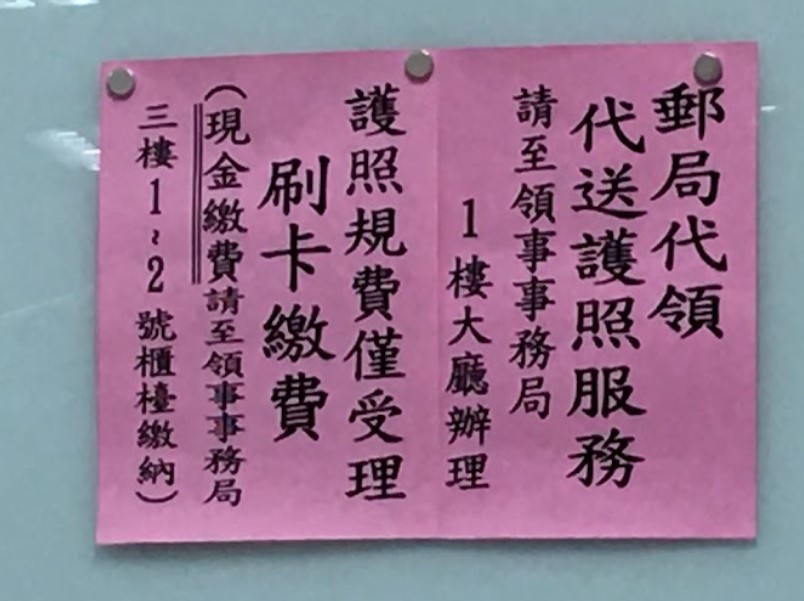 郵局代領
代送護照服務
請至領事事務局
1樓大廳辦理
護照規費僅受理
刷卡繳費
（現金繳費請至領事事務局
三樓1~2號櫃檯繳納）